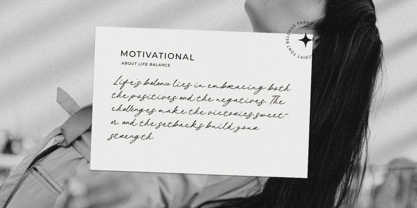 MOTIVATIONAL
ABOUT LIFE BALANCE
Life's balance lies in embracing both
the positives and the negatives. The
challenges make the victories sweet-
er, and the setbacks build your
strength